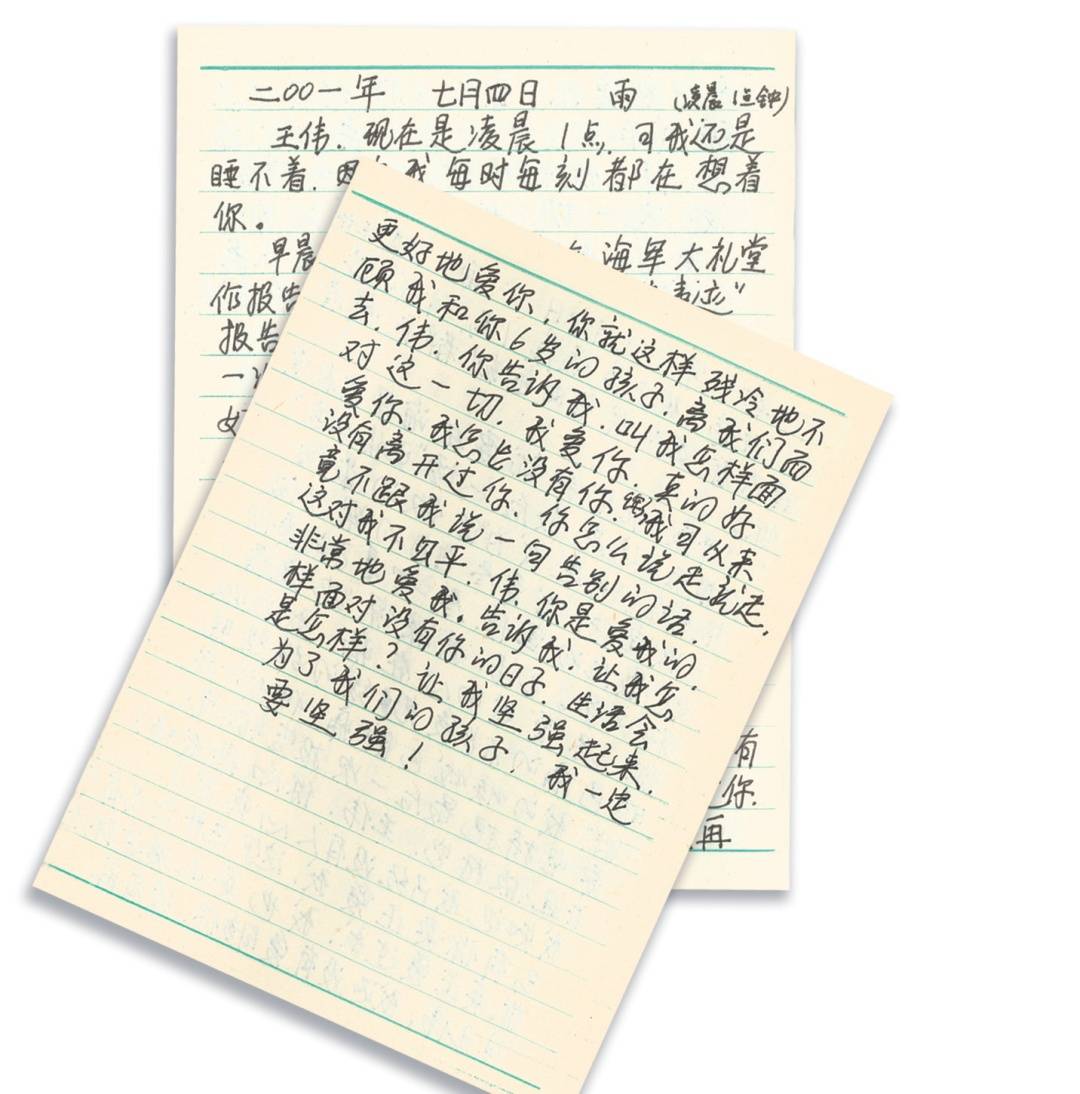 二〇〇一年 七月四日 雨 (凌晨1点钟)
王伟.现在是凌晨1点.可我还是
睡不着.因 我每时每刻都在想着
你。
早晨 海军大礼堂
作报告 事迹”
报告
一
好
有
你.
再
更好地爱你,你就这样残冷地不
顾我和你6岁的孩子.离我们而
去.伟.你告诉我.叫我怎样面
对这一切.我爱你.真的好
爱你.我怎能没有你 我可从来
没有离开过你.你怎么说走就走,
竟不跟我说一句告别的话.
这对我不公平.伟.你是爱我的.
非常地爱我.告诉我.让我怎
样面对没有你的日子.生活会
是怎样?让我坚强起来.
为了我们的孩子.我一定
要坚强!